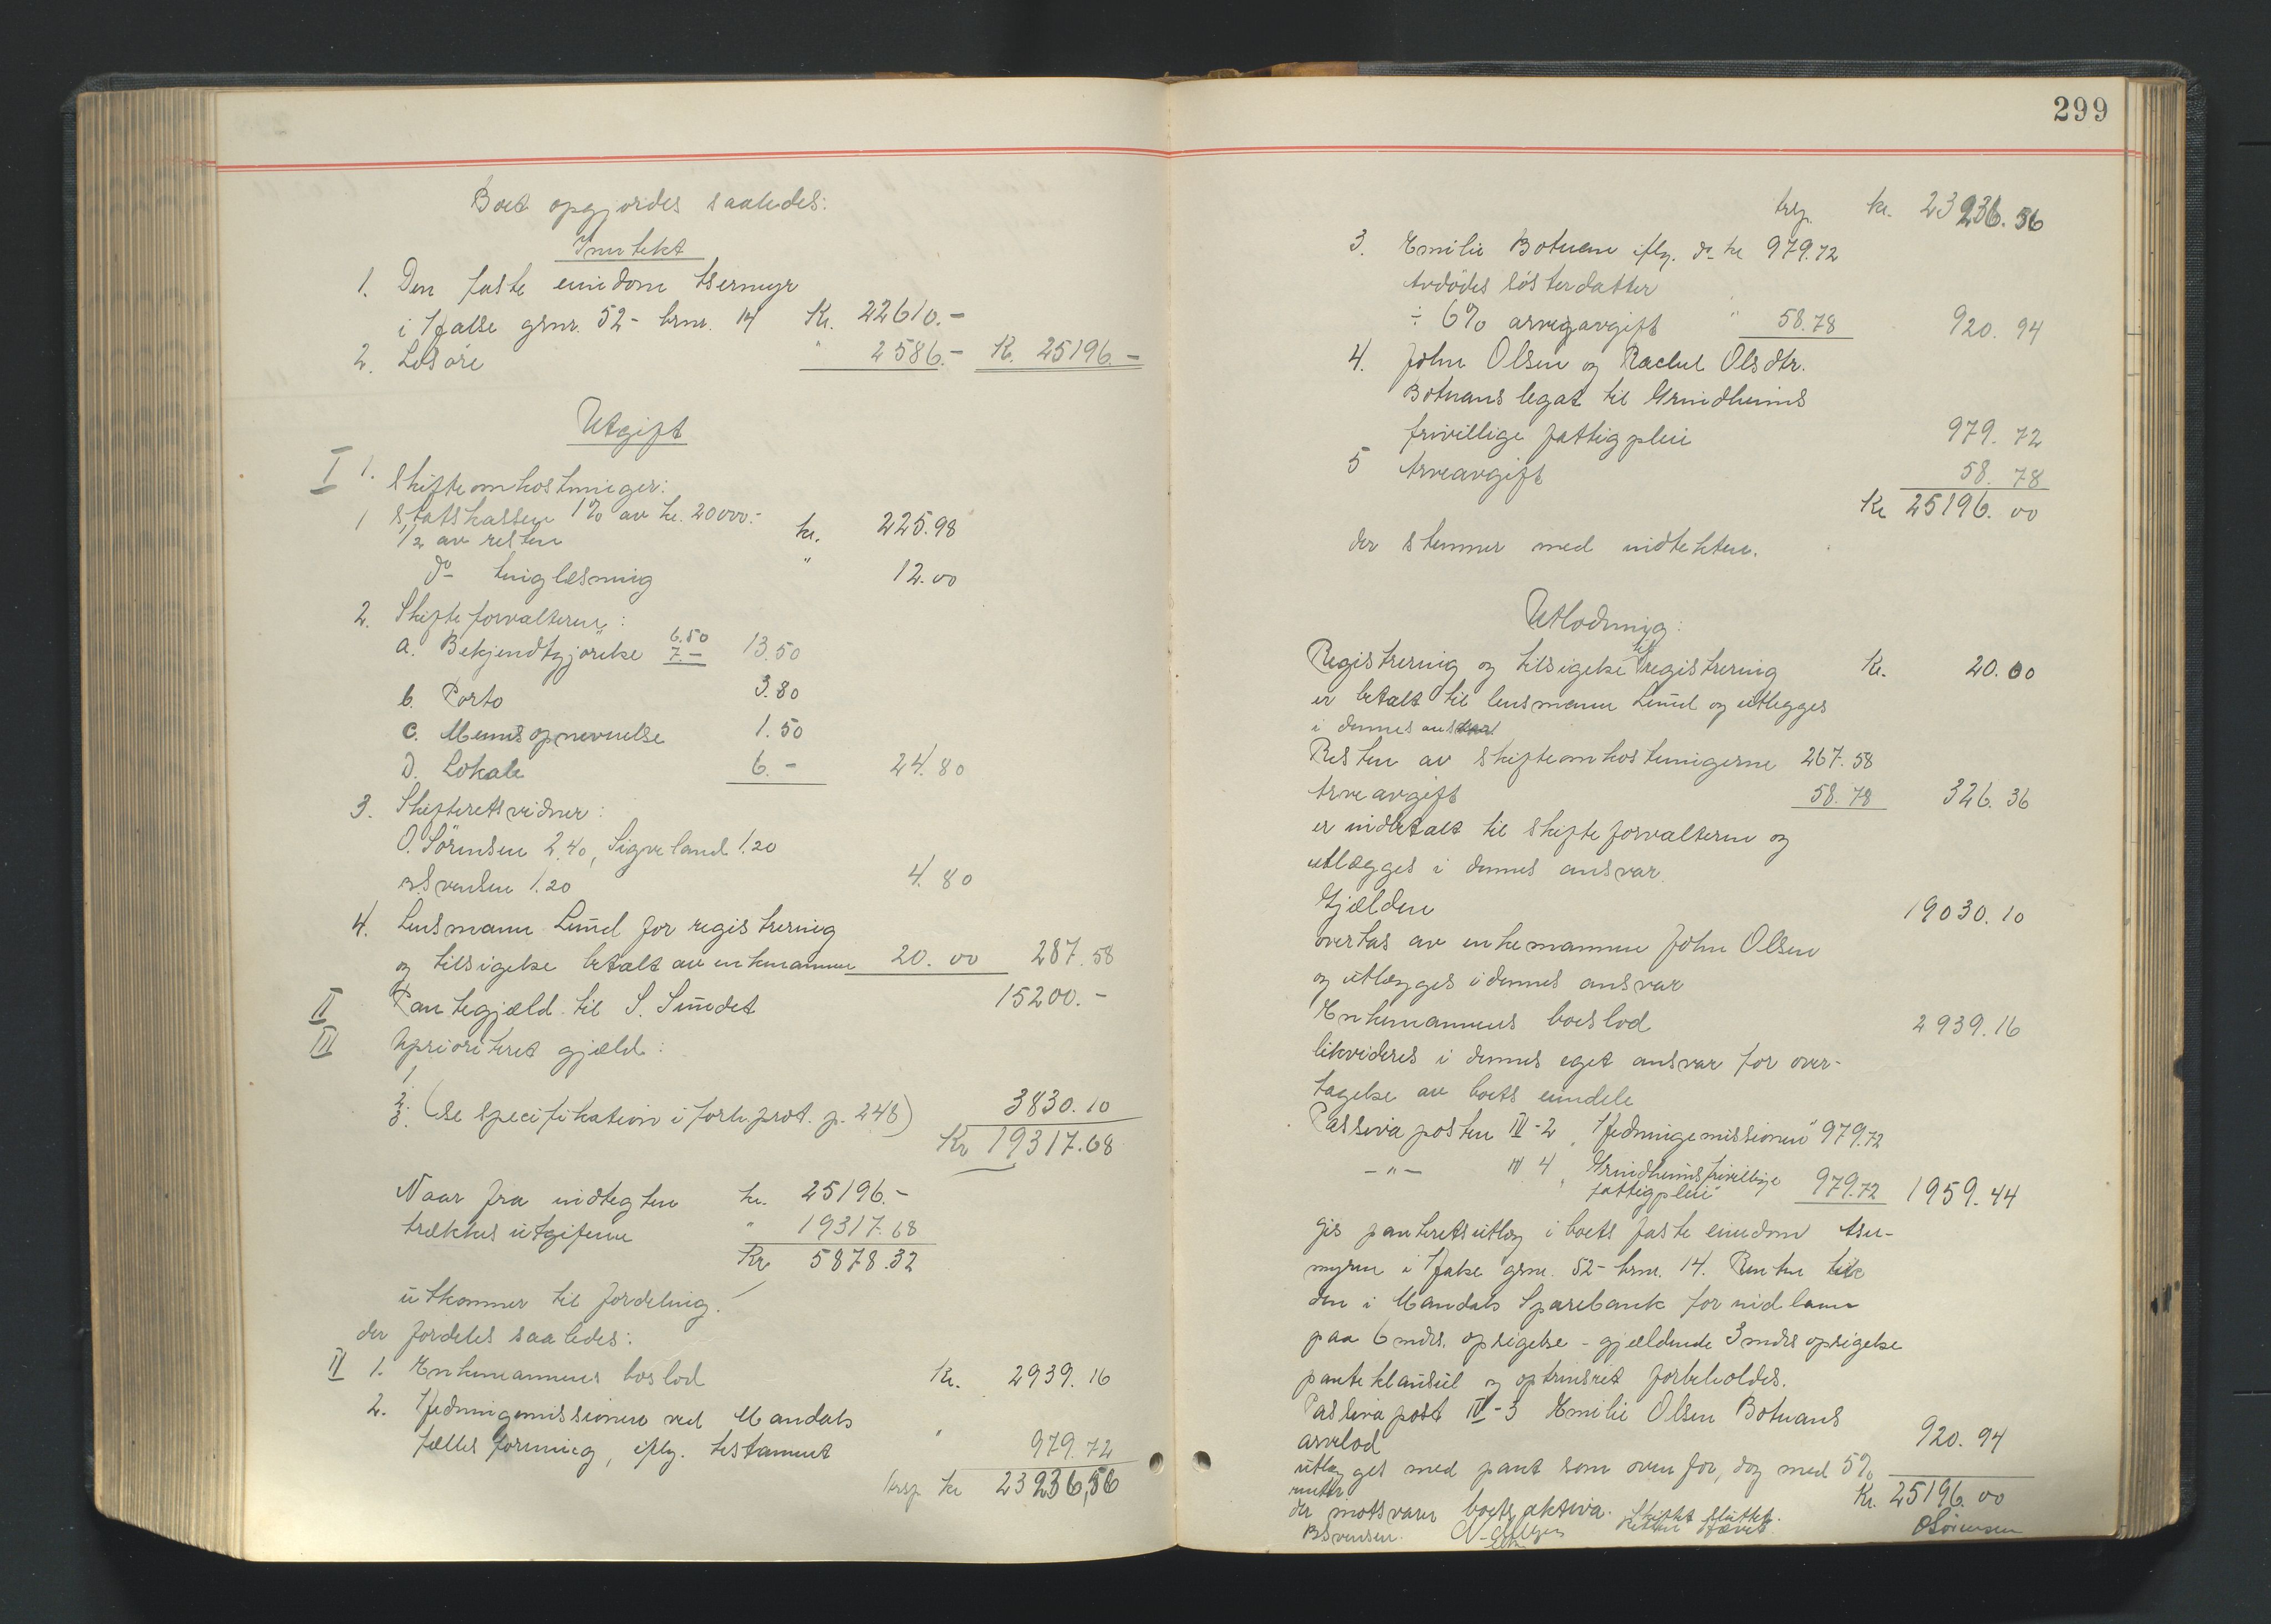 Boet opgjordes saaledes:
Inntekt
1. Den faste eiendom Asemyr
i Hfalse grnr. 52 - brnr. 14 Kr. 22610.-
2. Løsøre " 2586.- K. 25196.-
Utgift
I 1. Skifteomkostninger:
1 Statskassen 1% av kr. 20000.-
1/2 av resten kr. 225.98
do tinglæsning " 12.00
2. Skifteforvalteren:
a. Bekjendtgjørelse 6.50 7.- 13.50
b. Porto 3.80
c. Mennsopnevnelse 1.50
D. Lokale 6.- 24.80
3. Skifteretsvidner:
O. Sörensen 2.40, Sigveland 1.20
B Svensen 1.20 4.80
4. Lensmann Lund for registrering
og tilsigelse betalt av enkemannen 20.00 287.58
II Pantegjæld til S. Sundet 15200.-
III Uprioritert gjæld:
1.
2. (se specifikation i forh.prot. p. 248) 3830.10
3.
Kr 19317.68
Naar fra indtegten kr. 25196.-
trækkes utgifterne " 19317.68
Kr. 5878.32
utkommer til fordeling.
der fordeles saaledes:
IV 1. Enkemannens boslod Kr. 2939.16
2. Hedningemissionen ved Mandals
fælles forening, iflg. testament " 979.72
trsp kr 23236,56
299
trsp. kr. 23236.56
3. Emilie Botnan iflg. do kr 979.72
Avdödes sösterdatter
÷ 6% arvegavgift " 58.78 920.94
4. John Olsen og Rachel Olsdtr.
Botnans legat til Grindheims
frivillige fattigpleie 979.72
5 Arveavgift 58.78
Kr 25196.00
der stemmer med indtekten.
Utlodning:
Registrering og tilsigelse til registrering Kr. 20.00
er betalt til lensmann Lund og utlegges
i dennes ansvar
Resten av skifteomkostningerne 267.58
Arveavgift 58.78 326.36
er indbetalt til skifteforvalteren og
utlægges i dennes ansvar
Gjælden 19030.10
overtas av enkemannen John Olsen
og utlægges i dennes ansvar
Enkemannens boslod 2939.16
likvideres i dennes eget ansvar for over-
tagelse av boets eiendele
Passiva posten IV-2 "Hedningemissionen" 979.72
-"- IV 4 "Grindheims frivillige
fattigpleie" 979.72 1959.44
gis panteretsutlæg i boets faste eiendom Ase-
myren i Hfalse grnr. 52 - brnr. 14. Renten lik
den i Mandals Sparebank for indlaan
paa 6 mdrs. opsigelse - gjældende 3 mdrs opsigelse
panteklausul og optrinsret forbeholdes.
Passiva post IV-3 Emilie Olsen Botnans
arvelod 920.94
utlægges med pant som oven for, dog med 5%
renter
Kr. 25196.00
der motsvarer boets aktiva. Skiftet sluttet.
Retten hævet
B Svensen. O Sörensen